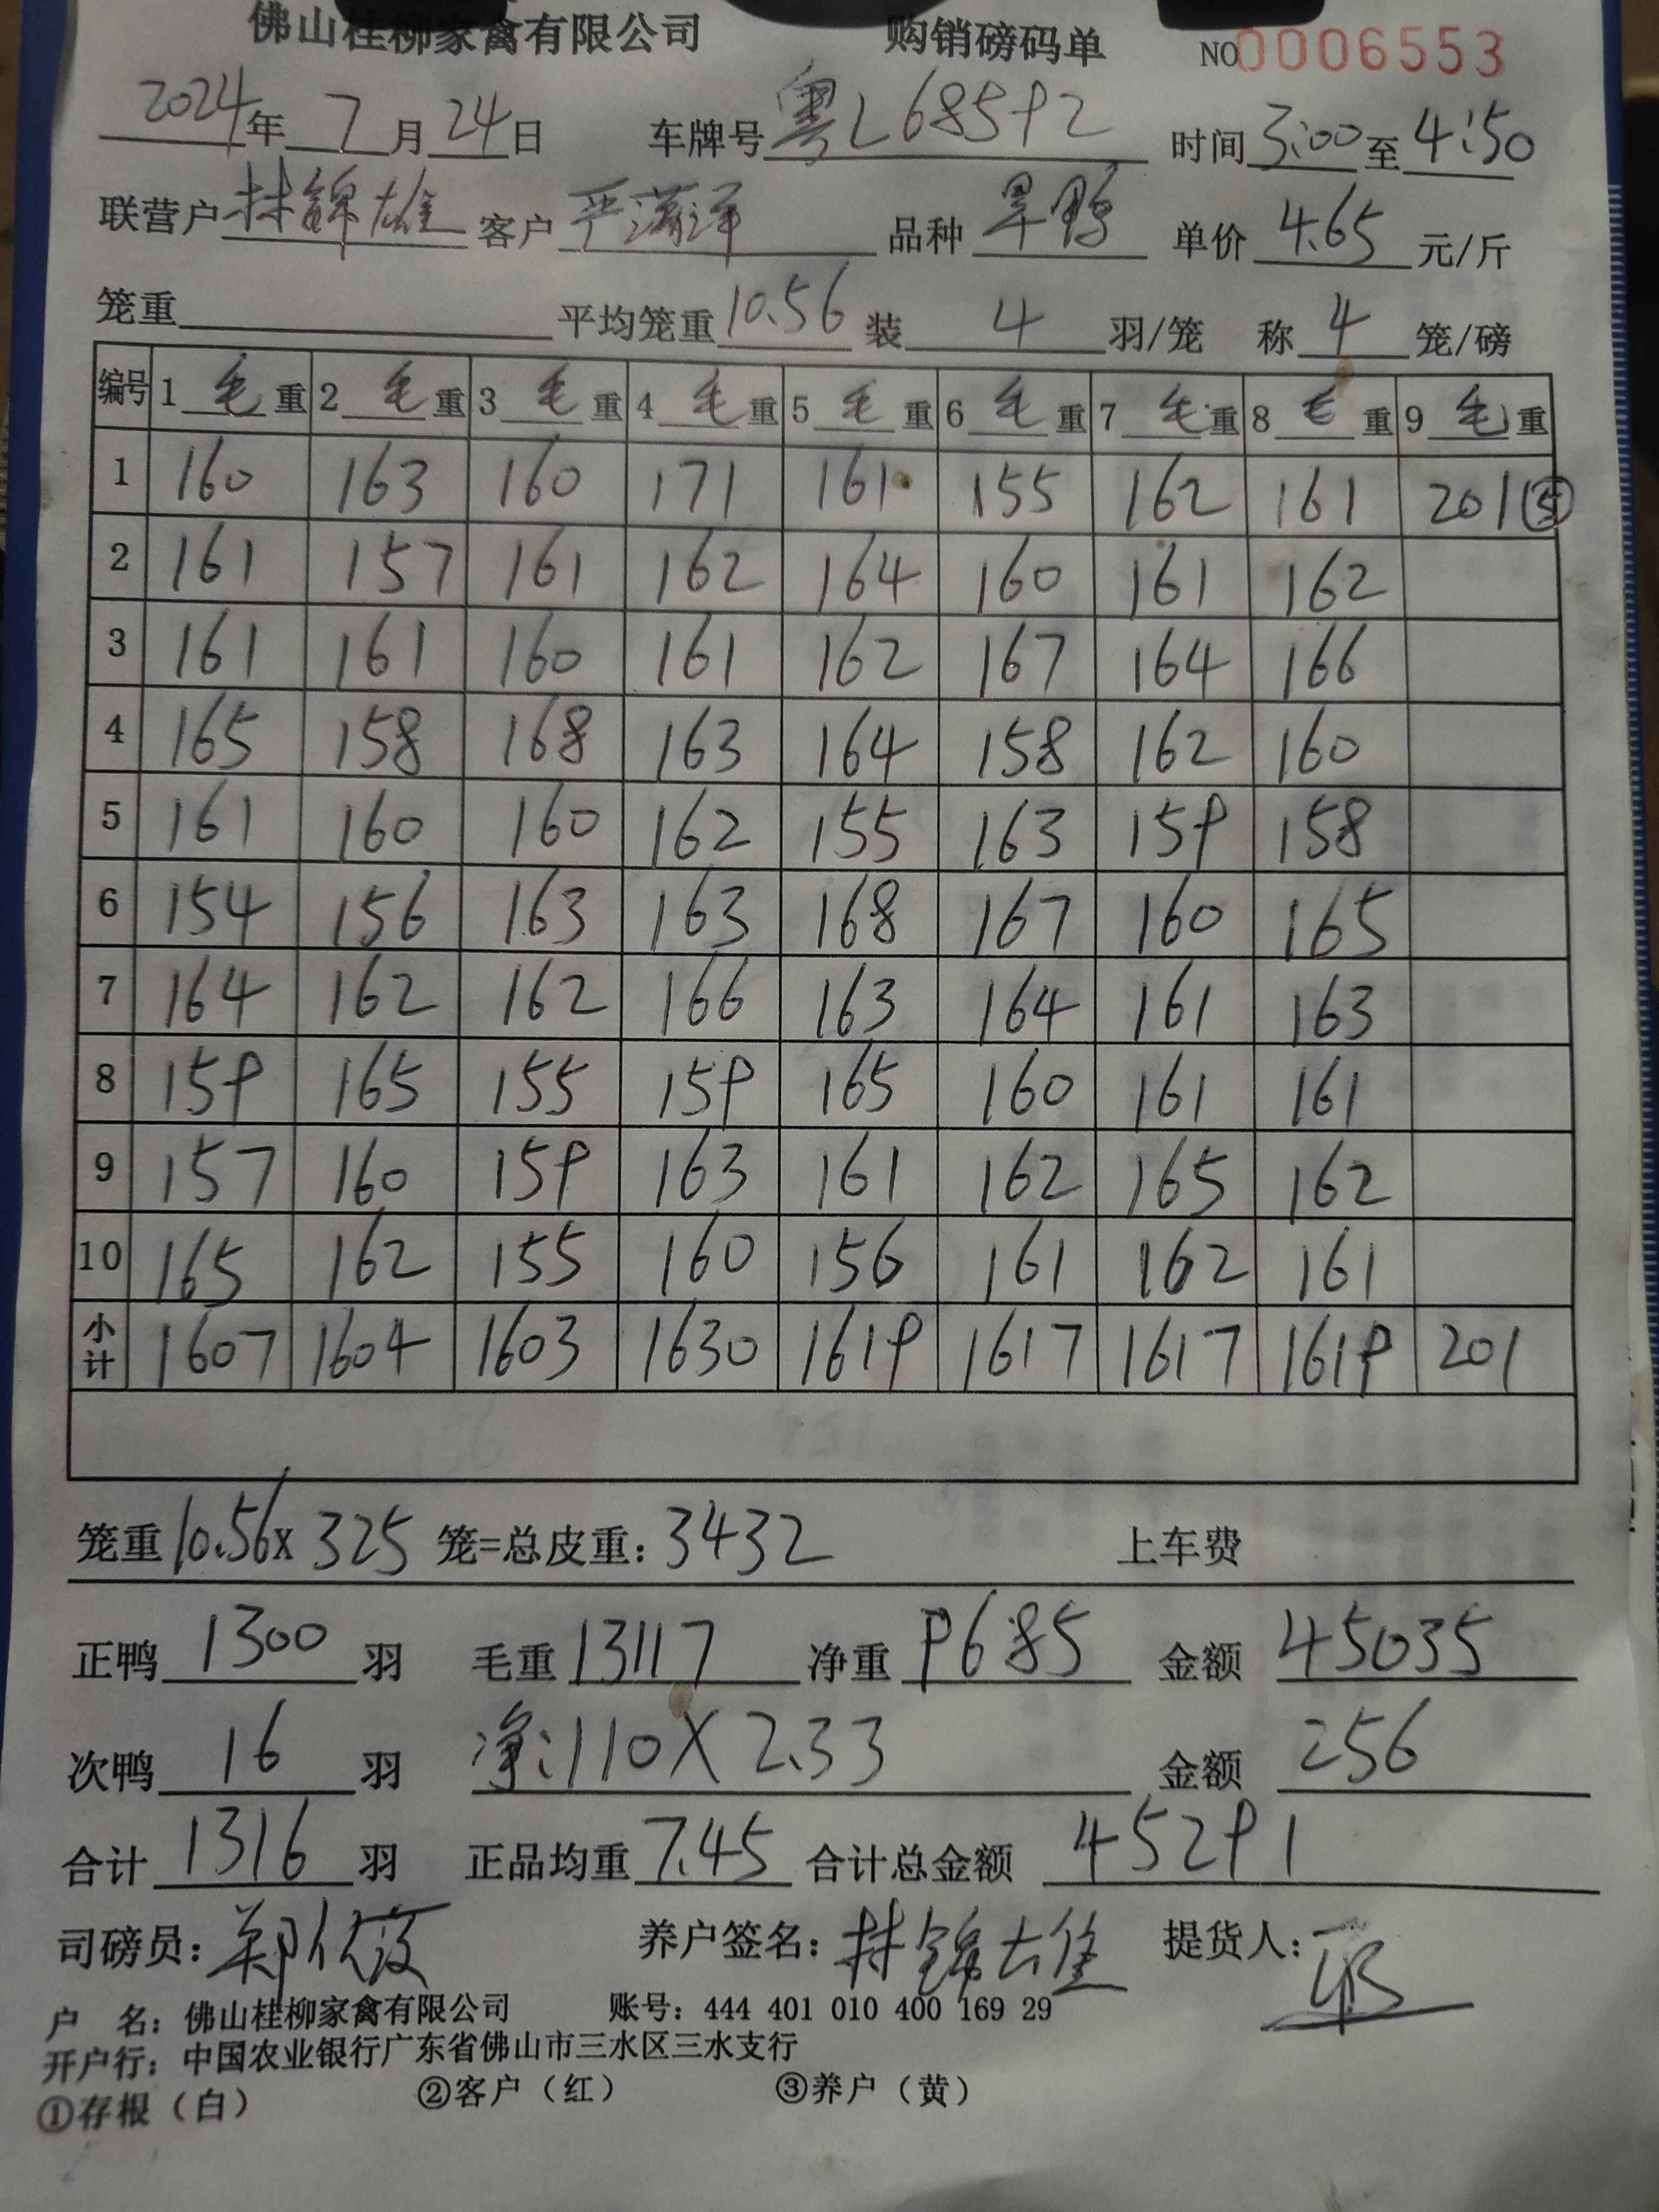 佛山桂柳家禽有限公司 购销磅码单 NO0006553
2024年7月24日 车牌号粤L68592 时间3:00至4:50
联营户林錦雄 客户严 品种旱鸭 单价4.65元/斤
笼重 平均笼重10.56 装4羽/笼 称4笼/磅
编号 1毛重 2毛重 3毛重 4毛重 5毛重 6毛重 7毛重 8毛重 9毛重
1 160 163 160 171 161 155 162 161 201⑤
2 161 157 161 162 164 160 161 162
3 161 161 160 161 162 167 164 166
4 165 158 168 163 164 158 162 160
5 161 160 160 162 155 163 159 158
6 154 156 163 163 168 167 160 165
7 164 162 162 166 163 164 161 163
8 159 165 155 159 165 160 161 161
9 157 160 159 163 161 162 165 162
10 165 162 155 160 156 161 162 161
小计 1607 1604 1603 1630 1619 1617 1617 1619 201
笼重10.56x325笼=总皮重：3432 上车费
正鸭1300羽 毛重13117 净重9685 金额45035
次鸭16羽 净:110X2.33 金额256
合计1316羽 正品均重7.45 合计总金额45291
司磅员：郑 养户签名：林錦雄 提货人：
户 名：佛山桂柳家禽有限公司 账号：444 401 010 400 169 29
开户行：中国农业银行广东省佛山市三水区三水支行
①存根（白） ②客户（红） ③养户（黄）